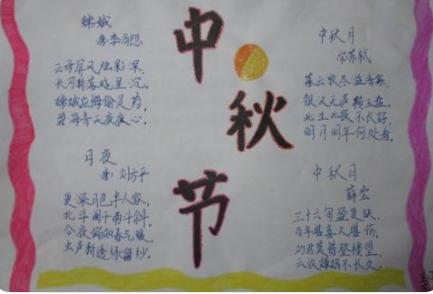 中秋节
嫦娥
唐李商隐
云母屏风烛影深,
长河渐落晓星沉,
嫦娥应悔偷灵药,
碧海青天夜夜心。
月夜
唐 刘方平
更深月色半人家,
北斗阑干南斗斜,
今夜偏知春气暖,
虫声新透绿窗纱。
中秋月
宋苏轼
暮云收尽溢清寒,
银汉无声转玉盘,
此生此夜不长好,
明月明年何处看。
中秋月
薛宝
三十六旬盈复缺,
百年堪喜又堪伤,
劝君莫惜登楼望,
云放婵娟不长久。